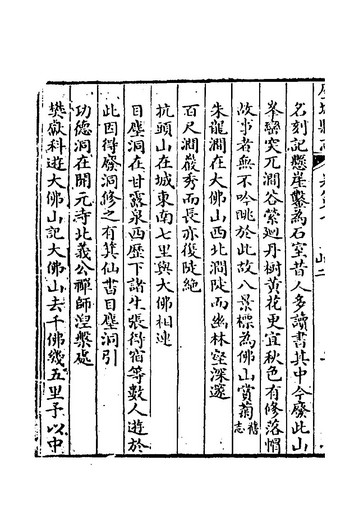 名刻記懸崖鑿為石室昔人多讀書其中今廢此山
峯巒突兀澗谷縈迴丹樹黃花更宜秋色有修落帽
故事者無不吟眺於此故八景標為佛山賞菊舊志
朱龍澗在大佛山西北澗陡而幽林壑深邃
百尺澗巖秀而長亦復陡絶
抗頭山在城東南七里與大佛相連
目塵洞在甘露泉西歷下諸生張得宿等數人遊於
此因得廢洞修之有箕仙書目塵洞引
功德洞在開元寺北義公禪師涅槃處
樊獻科遊大佛山記大佛山去千佛幾五里予以中